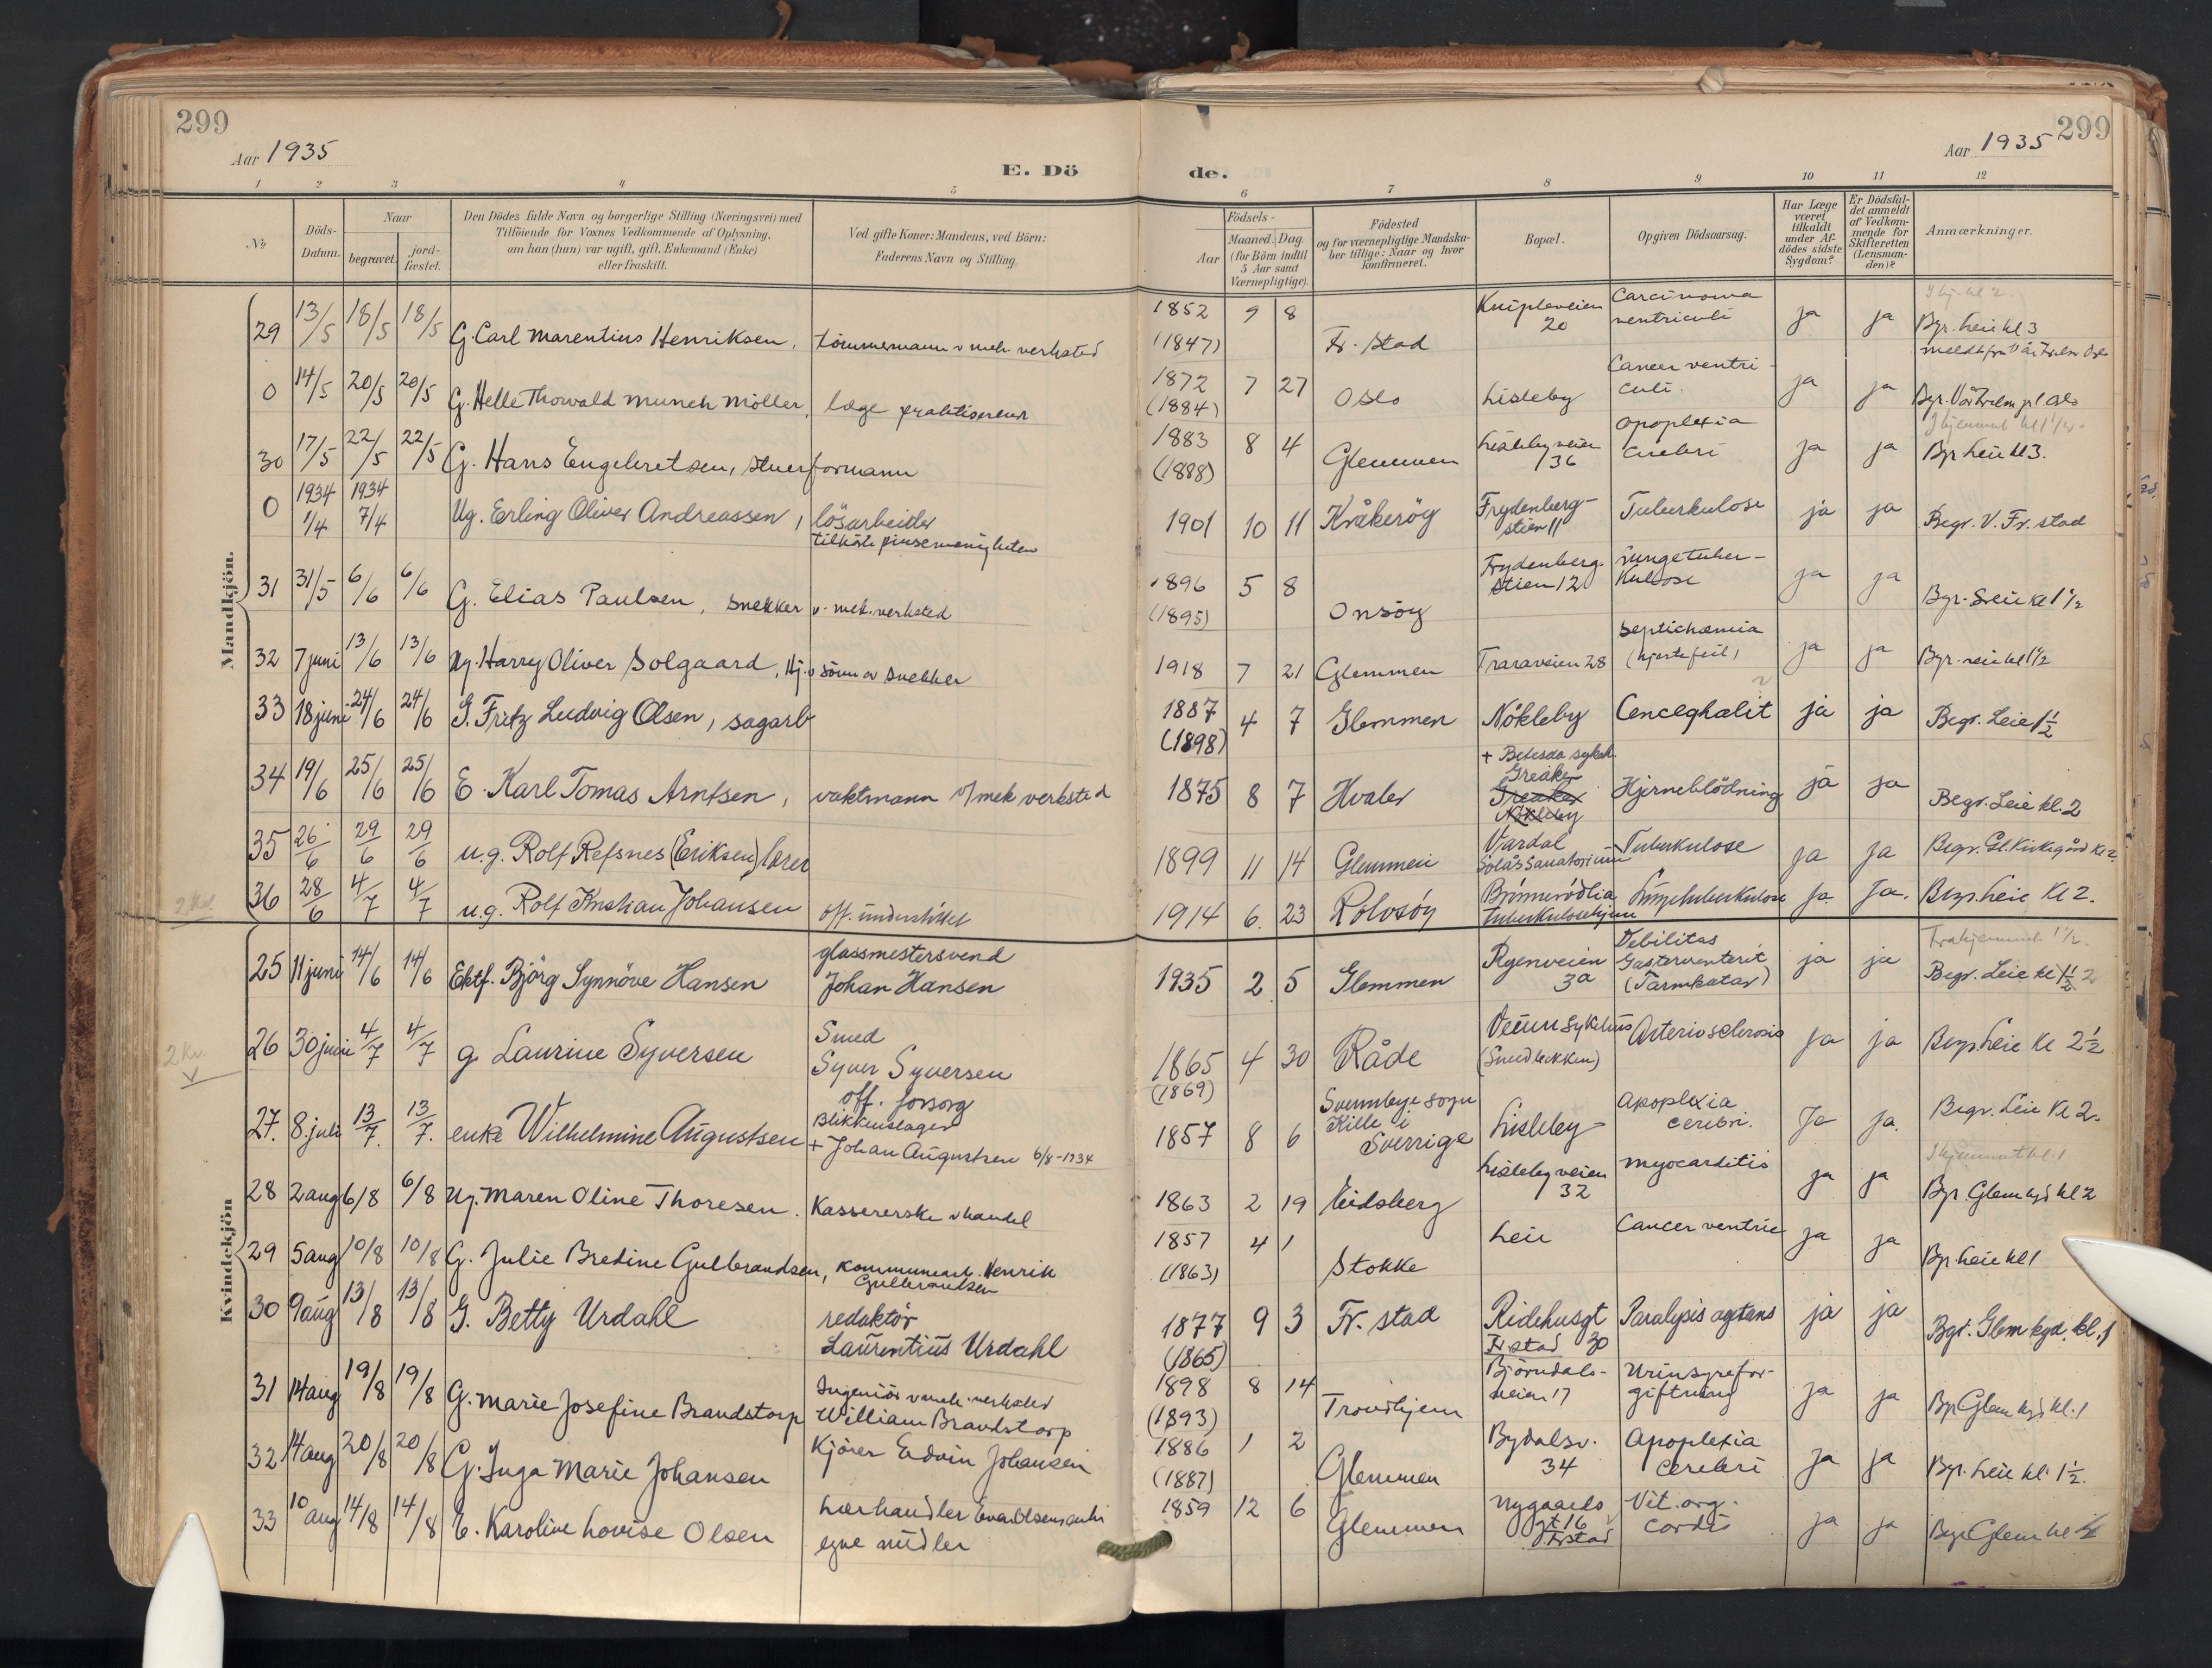 299
Aar 1935
E. Dö
de.
Aar 1935
299
1 2 3 4 5 6 7 8 9 10 11 12
No
Döds-
Datum.
Naar
begravet.
jord-
fæstet.
Den Dödes fulde Navn og borgerlige Stilling (Næringsvei) med
Tilföiende for Voxnes Vedkommende af Oplysning,
om han (hun) var ugift, gift, Enkemand (Enke)
eller fraskilt.
Ved gifte Koner: Mandens, ved Börn:
Faderens Navn og Stilling.
Födsels-
Aar
Maaned.
Dag.
(for Börn indtil
5 Aar samt
Værnepligtige).
Födested
og for værnepligtige Mandska-
ber tillige: Naar og hvor
konfirmeret.
Bopæl.
Opgiven Dödsaarsag.
Har Læge
været
tilkaldt
under Af-
dödes sidste
Sygdom?
Er Dödsfal-
det anmeldt
af Vedkom-
mende for
Skifteretten
(Lensman-
den)?
Anmærkninger.
Mandkjön.
29 13/5 18/5 18/5 G. Carl Marentius Henriksen, tömmermann v mek verksted 1852 (1847) 9 8 Fr. stad Knipleveien 20 Carcinoma ventriculi ja ja Bgr. Leie kl 3
0 14/5 20/5 20/5 G. Helle Thorvald Munch Möller, læge praktiserende 1872 (1884) 7 27 Oslo Lisleby Cancer ventriculi. ja ja
30 17/5 22/5 22/5 G. Hans Engebretsen, stuerformann 1883 (1888) 8 4 Glemmen Lislebyveien 136 apoplexia cerebri ja ja Bgr Leie kl 3.
0 1934 1/4 1934 7/4 Ug. Erling Oliver Andreassen, lösarbeider tilhörte pinsemenigheten 1901 10 11 Kråkeröy Frydenberg-stien 11 Tuberkulose ja ja Begr. V. Fr. stad
31 31/5 6/6 6/6 G. Elias Paulsen, snekker v. mek. verksted 1896 (1895) 5 8 Onsöy Frydenberg-stien 12 Lungetuberkulose ja ja Bgr. Leie kl 1 1/2
32 7 juni 13/6 13/6 Ug. Harry Oliver Solgaard, Hj.v sönn av snekker 1918 7 21 Glemmen Traraveien 28 Septichæmia (hjertefeil) ja ja Bgr. Leie kl 1 1/2
33 18 juni 24/6 24/6 G. Fritz Ludvig Olsen, sagarb 1887 (1898) 4 7 Glemmen Nökleby Cenceghalit ja ja Begr. Leie 1 1/2
34 19/6 25/6 25/6 E. Karl Tomas Arntsen, vaktmann v/ mek verksted 1875 8 7 Hvaler + Betesda sykeh. Greåker Hjerneblödning ja ja Begr. Leie kl. 2
35 26/6 29/6 29/6 u.g. Rolf Refsnes (Eriksen) lærer 1899 11 14 Glemmen Vardal Solås Sanatorium Tuberkulose ja ja Begr. Gl. Kirkegård Kl 2.
2 Kd.
36 28/6 4/7 4/7 u.g. Rolf Kristian Johansen off. understöttet 1914 6. 23 Rolvsöy Brönnerödlia tuberkulosehjem Lungetuberkulose ja Ja. Begr. Leie Kl 2.
Kvindekjön
25 11 juni 14/6 14/6 Ektf. Björg Synnöve Hansen glassmestersvend Johan Hansen 1935 2 5 Glemmen Ryenveien 3a Debilitas Gasterventerit (Tarmkatar) ja ja Begr. Leie kl 2
2 Kv.
26 30 juni 4/7 4/7 g Laurine Syversen Smed Syver Syversen 1865 (1869) 4 30 Råde Veum Sykehus (Smedbakken) Arteriosclerosis ja ja Begr. Leie Kl 2 1/2
27. 8. juli 13/7. 13/7. enke Wilhelmine Augustsen off. forsorg Blikkenslager + Johan Augustsen 6/8-1934 1857 8 6 Kille i Sverrige Lisleby apoplexia cerebri. Ja ja. Begr. Leie Kl 2.
28 2 aug 6/8 6/8 Ug. Maren Oline Thoresen. Kassererske v handel 1863 2 19 Eidsberg Lislebyveien 32 myocarditis ja ja Bgr. Glem kgd kl 2
29 5 aug 10/8 10/8 G. Julie Bredine Gulbrandsen, kommunearb. Henrik Gulbrandsen 1857 (1863) 4 1 Stokke Leie Cancer ventric ja ja Bgr. Leie kl 1
30 9 aug 13/8 13/8 G. Betty Urdahl redaktör Laurentius Urdahl 1877 (1865) 9 3 Fr. stad Ridehusgt 30 Fr stad Paralysis agitans ja ja Bgr. Glem kgd. kl. 1
31 14 aug 19/8 19/8 G. Marie Josefine Brandstorp Ingeniör v mek. verksted William Brandstorp 1898 (1893) 8 14 Trondhjem Björndals-veien 17 Urinsyrefor-giftning ja ja Bgr Glem kgd kl. 1
32 14 aug 20/8 20/8 G. Inga Marie Johansen Kjörer Edvin Johansen 1886 (1887) 1 2 Glemmen Bydalsv. 34 Apoplexia cerebri ja ja Bgr. Leie kl. 1 1/2.
33 10 aug 14/8 14/8 E. Karoline Lovise Olsen Lærhandler egne midler 1859 12 6 Glemmen Nygaards gt 16 Frstad Vit. org. cordis ja ja Bgr Glem kl